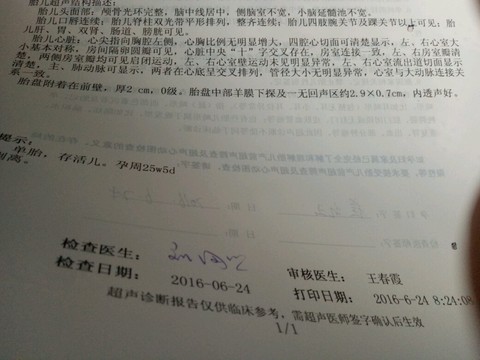 胎儿超声结构描述：
胎儿头面部：颅骨光环完整，脑中线居中，侧脑室不宽，小脑延髓池不宽。
胎儿口唇连续；胎儿脊柱双光带平行排列，整齐连续；胎儿四肢腕关节及踝关节以上可见；胎
儿肝、胃、双肾、肠道、膀胱可见。
胎儿心脏：心尖指向胸腔左侧，心胸比例无明显增大，四腔心切面可清楚显示，左、右心室大
小基本对称，房间隔卵圆瓣可见，心脏中央"十"字交叉存在，房室连接一致，左、右房室瓣清
楚，两侧房室瓣均可见启闭运动，左、右心室壁运动未见明显异常，左、右心室流出道切面显示
清楚，主、肺动脉可显示，两者在心底呈交叉排列，管径大小无明显异常，心室与大动脉连接关
系一致。
胎盘附着在前壁，厚2 cm，0级。胎盘中部羊膜下探及一无回声区约2.9×0.7cm，内透声好。
提示：
单胎，存活儿。孕周25w5d
检查医生：
检查日期： 2016-06-24
审核医生： 王春霞
打印日期： 2016-6-24 8:24:08
超声诊断报告仅供临床参考，需超声医师签字确认后生效
1/1